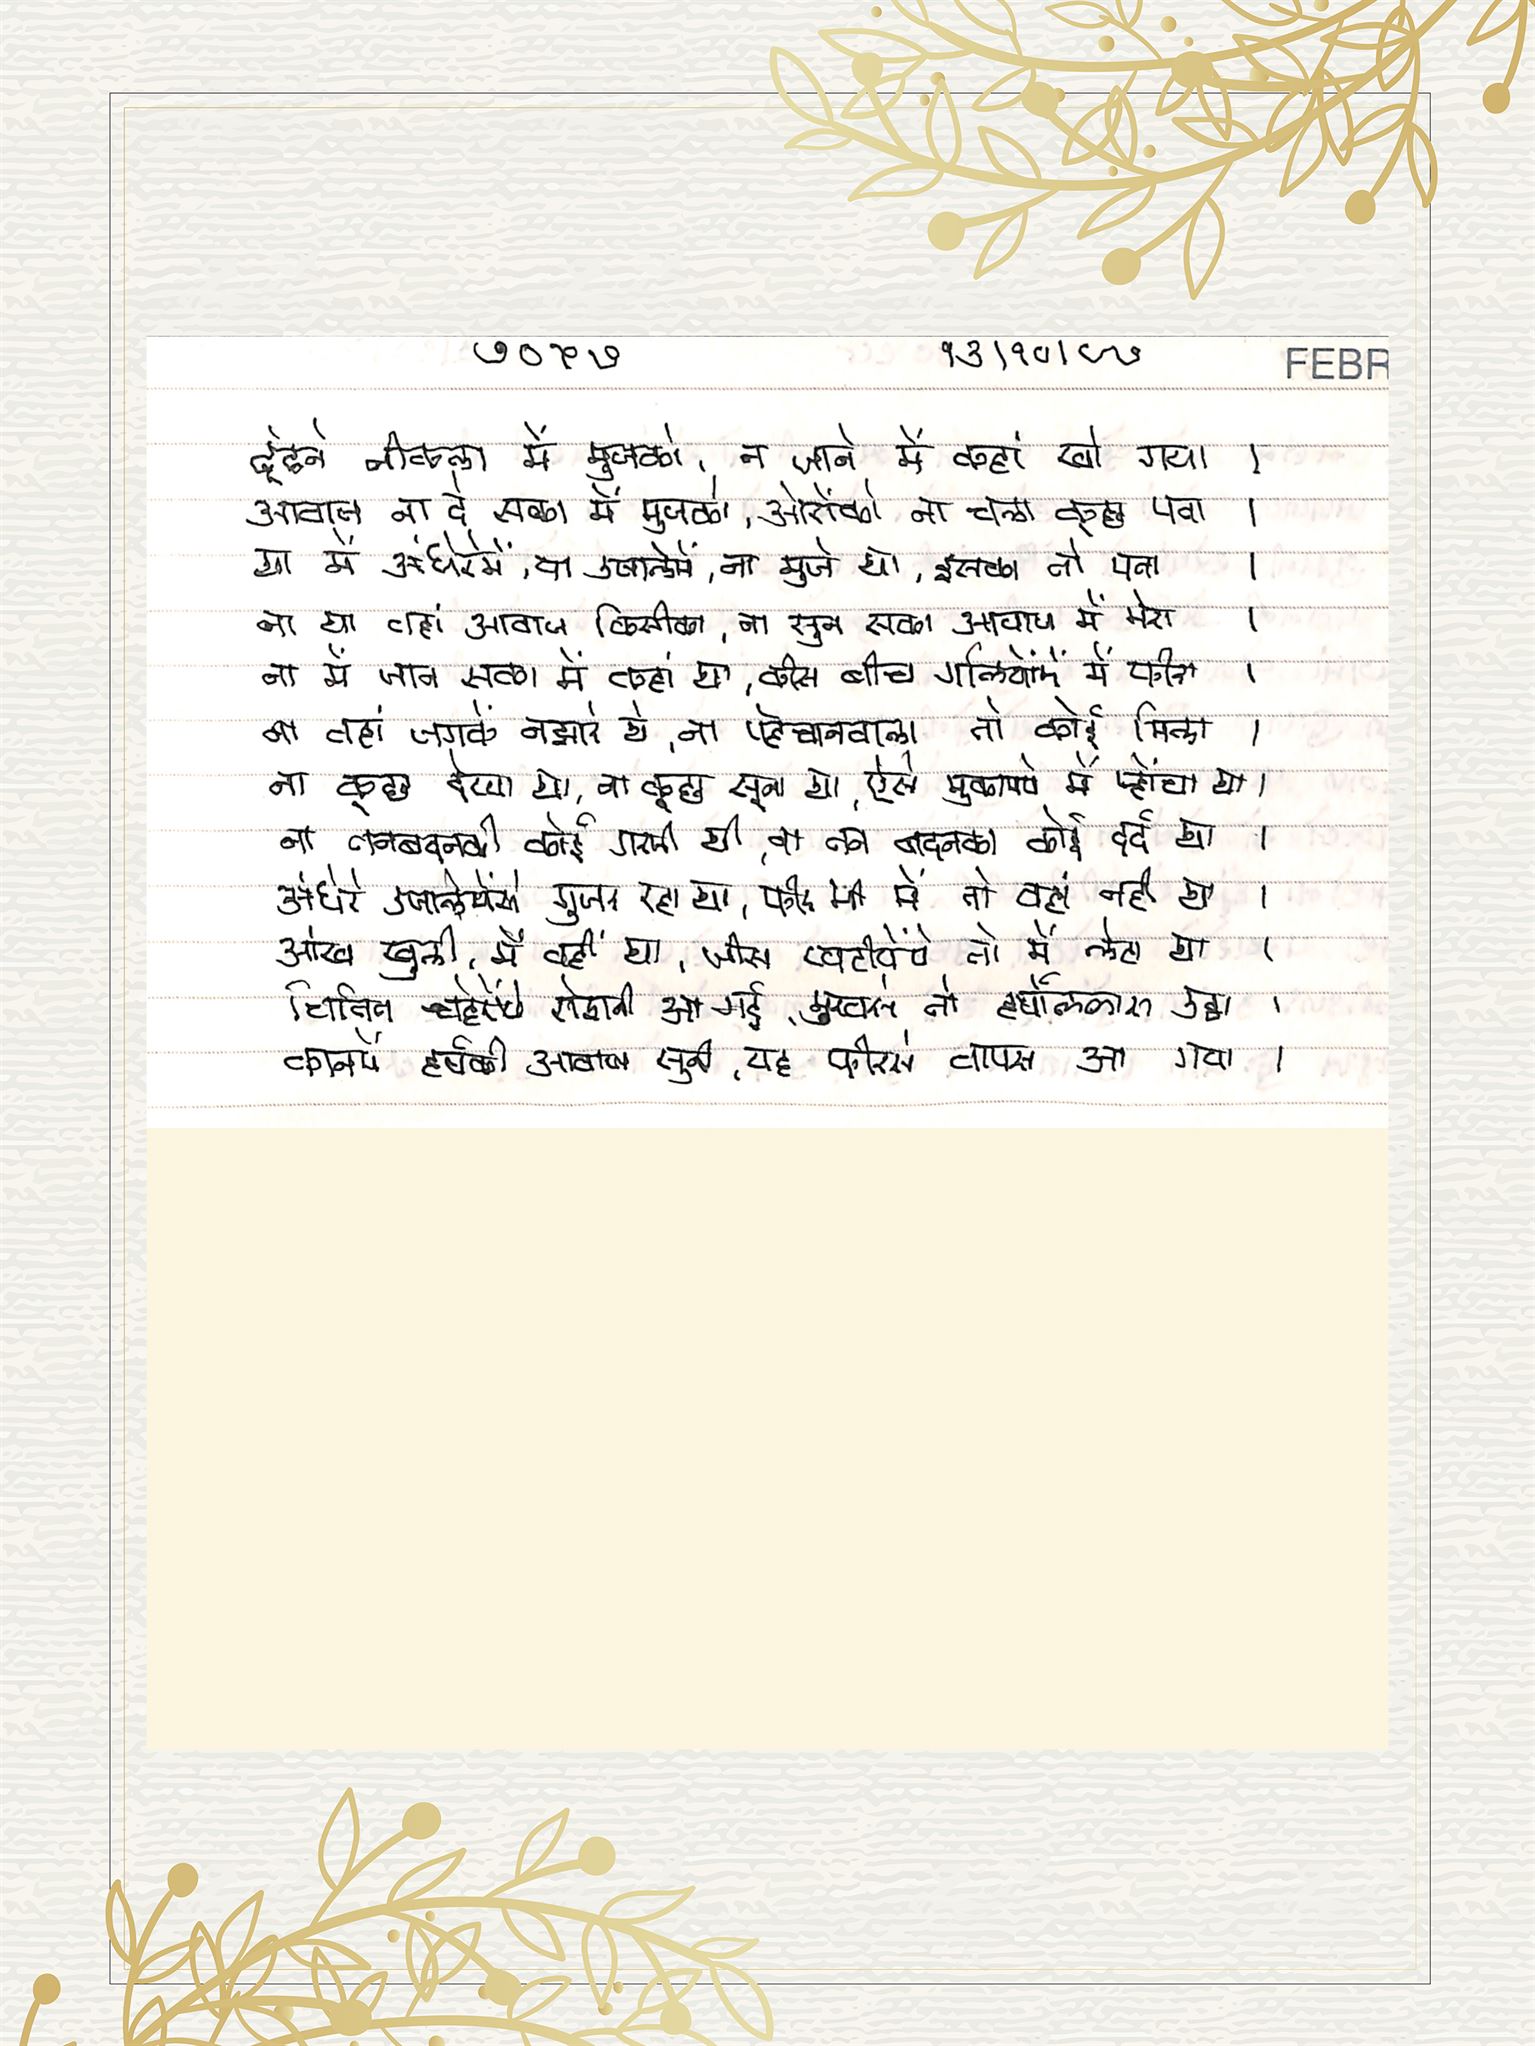 ७०५७ १३/१०/८७ FEBR
ढूंढने नीकला में मुजको, न जाने में कहां खो गया ।
आवाज ना दे सका में मुजको, ओरोंको ना चला कूछ पता ।
था में अंधेरेमें, या उजालेमें, ना मुजे था, इसका तो पता ।
ना था वहां आवाज किसीका, ना सुन सका आवाज में मेरा ।
ना में जान सका में कहां था, कीस बीच गलियोंमें में फीरा ।
ना वहां जगके नझारे थे, ना पहेचानवाला तो कोई मिला ।
ना कूछ देखा था, ना कूछ सूना था, ऐसे मुकामपे में प्होंचा था ।
ना तनबदनकी कोई गरमी थी, ना तन बदनका कोई दर्द था ।
अंधेरे उजालेमेंसे गुजर रहा था, फीर भी में तो वहां नही था ।
आंख खुली, में वहीं था, जीस स्थितीमें तो में लेटा था ।
चिंतित चहेरोंपे रोशनी आ गई, मुखसे तो हर्षोल्लास उठा ।
कानमें हर्षकी आवाज सुनी, यह फीरसे वापस आ गया ।